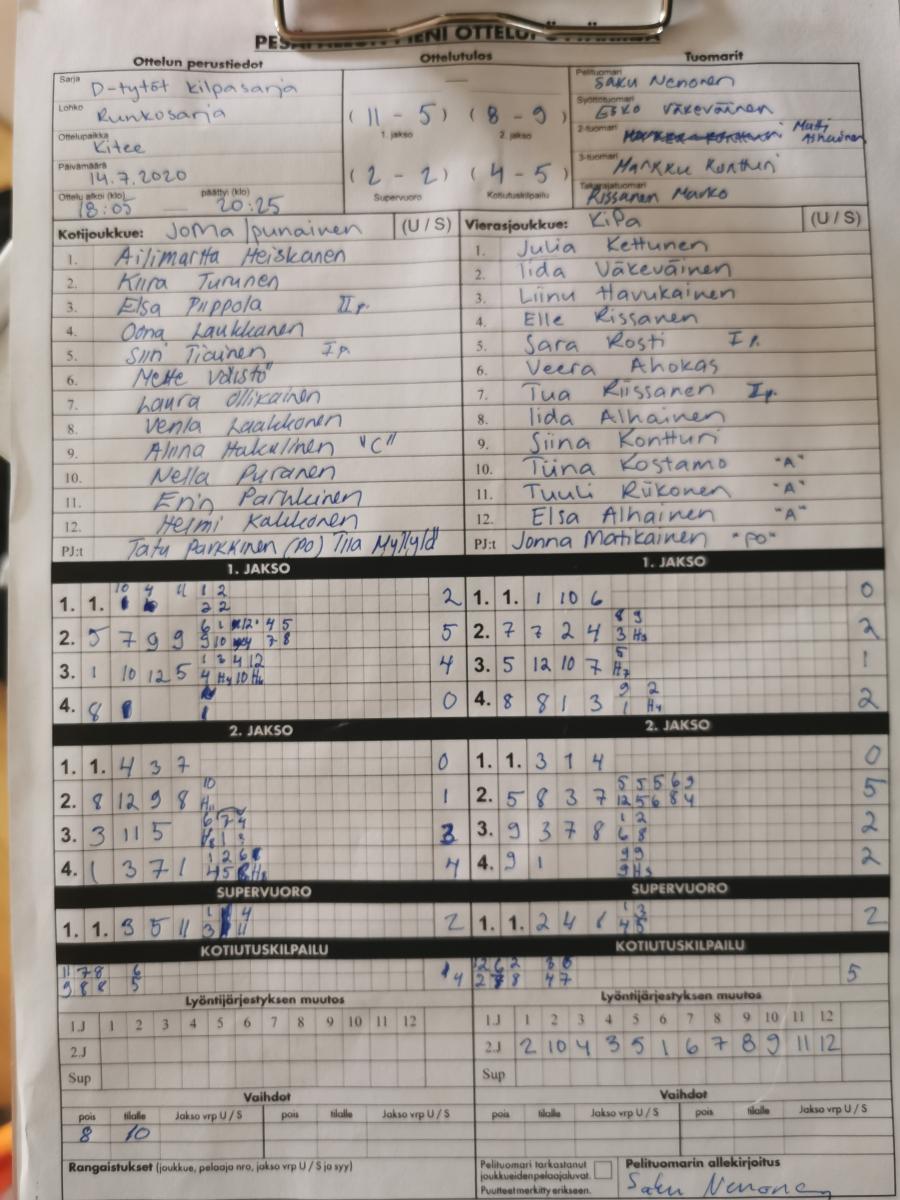 Ottelun perustiedot
Ottelutulos
Tuomarit
Sarja
D-tytöt kilpasarja
Lohko
Runkosarja
Ottelupaikka
Kitee
Päivämäärä
14.7.2020
Ottelu alkoi (klo) päättyi (klo)
18:05 — 20:25
( 11 - 5 ) ( 8 - 9 )
1. jakso 2. jakso
( 2 - 2 ) ( 4 - 5 )
Supervuoro Kotiutuskilpailu
Pelituomari
Saku Nenonen
Syöttötuomari
Esko Väkeväinen
2-tuomari
Matti Alhainen
3-tuomari
Markku Kontturi
Takarajatuomari
Rissanen Marko
Kotijoukkue: JoMa punainen (U / S)
1. Ailimartta Heiskanen
2. Kiira Turunen
3. Elsa Piippola II p.
4. Oona Laukkanen
5. Siiri Tiainen I p.
6. Mette Väistö
7. Laura Ollikainen
8. Venla Laakkonen
9. Alina Hakulinen "C"
10. Nella Puranen
11. Erin Parkkinen
12. Helmi Kakkonen
PJ:t Tatu Parkkinen (PO) Tiia Myllylä
Vierasjoukkue: KiPa (U / S)
1. Julia Kettunen
2. Iida Väkeväinen
3. Liinu Havukainen
4. Elle Rissanen
5. Sara Rosti I p.
6. Veera Ahokas
7. Tua Riissanen I p.
8. Iida Alhainen
9. Siina Kontturi
10. Tiina Kostamo "A"
11. Tuuli Riikonen "A"
12. Elsa Alhainen "A"
PJ:t Jonna Matikainen "PO"
1. JAKSO
10 4 11 1 2
1. 1. 2 2 2
6 1 12 4 5
2. 5 7 9 9 9 10 7 8 5
1 3 4 12
3. 1 10 12 5 4 H4 10 H6 4
4. 8 0
1. JAKSO
1. 1. 1 10 6 0
8 9
2. 7 7 2 4 3 H3 2
5
3. 5 12 10 7 H7 1
9 2
4. 8 8 1 3 1 H4 2
2. JAKSO
1. 1. 4 3 7 0
10
2. 8 12 9 8 H11 1
6 7 4
3. 3 11 5 H8 1 3 3
1 2 6
4. 1 3 7 1 4 5 H8 4
2. JAKSO
1. 1. 3 1 4 0
5 5 5 6 9
2. 5 8 3 7 12 5 6 8 4 5
1 2
3. 9 3 7 8 6 8 2
9 9
4. 9 1 9 H3 2
SUPERVUORO
1 4
1. 1. 9 5 11 3 11 2
SUPERVUORO
1 3
1. 1. 2 4 1 4 5 2
KOTIUTUSKILPAILU
11 7 8 6
9 8 8 5 4
KOTIUTUSKILPAILU
12 6 2 3 6
2 8 4 7 5
Lyöntijärjestyksen muutos
1.J 1 2 3 4 5 6 7 8 9 10 11 12
2.J
Sup
Lyöntijärjestyksen muutos
1.J 1 2 3 4 5 6 7 8 9 10 11 12
2.J 2 10 4 3 5 1 6 7 8 9 11 12
Sup
Vaihdot
pois tilalle Jakso vrp U / S pois tilalle Jakso vrp U / S
8 10
Vaihdot
pois tilalle Jakso vrp U / S pois tilalle Jakso vrp U / S
Rangaistukset (joukkue, pelaaja nro, jakso vrp U / S ja syy)
Pelituomari tarkastanut
joukkueiden pelaajaluvat.
Puutteet merkitty erikseen.
Pelituomarin allekirjoitus
Saku Nenonen